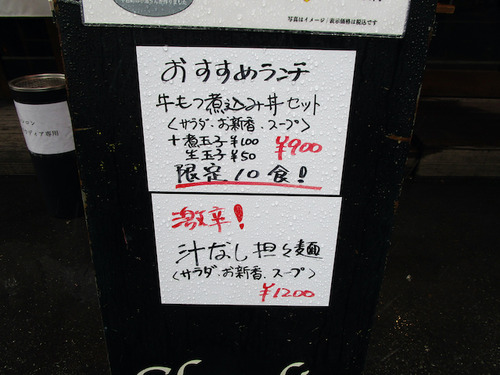 写真はイメージ/表示価格は税込です
おすすめランチ
牛もつ煮込み丼セット
〈サラダ・お新香・スープ〉
十煮玉子¥100
生玉子¥50
¥900
限定10食!
激辛!
汁なし担々麺
〈サラダ・お新香・スープ〉
¥1200